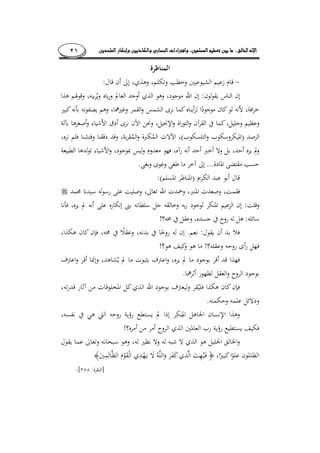 الإله الخالق.. ما بين تعظيم المسلمين، وافتراءات النصارى والعقلانيين وإنكار الملحدين ٢١
المناظرة
- قام زعيم الشيوعيين وخطب وتكلم، وهذى، إلى أن قال:
إن الناس يقولون: إن الله موجود، وهو الذي أوجد العالم ورباه ويُربيه، وقولهم هذا
خرافة، لأنه لو كان موجودًا لرأيناه كما نرى الشمس والقمر وغيرهما، وهم يصفونه بأنه كبير
وعظيم وجليل، كما في القرآن والتوراة والإنجيل، ونحن الآن نرى أدق الأشياء وأصغرها بآلة
الرصد (الميكروسكوب والتلسكوب)، الآلات المُكبرة والمُقرِّبة، وقد دققنا وفتشنا فلم نره،
ولم يره أحد، بل ولا أخبر أحد أنه رآه، فهو معدوم وليس بموجود، والأشياء تولدها الطبيعة
حسب مقتضى المادة... إلى آخر ما طغى وغوى وبغى.
قال أبو عبد الكريم (المناظر المسلم):
فقمت، وصعدت المنبر، وحمدت الله تعالى، وصليت على رسوله سيدنا محمد ﷺ
وقلت: إن الزعيم المنكر لوجود ربه وخالقه جل سلطانه بنى إنكاره على أنه لم يره، فأنا
سائله: هل له روح في جسده، وعقل في مخه؟!
فلا بد أن يقول: نعم. إن له روحًا في بدنه، وعقلاً في مخه، فإن كان هكذا،
فهل رأى روحه وعقله؟! ما هو وكيف هو؟!
فهذا قد أقر بوجود ما لم يره، واعترف بثبوت ما لم يُشاهد، وإنما أقر واعترف
بوجود الروح والعقل لظهور أثرهما.
فإن كان هكذا فليُقر وليعترف بوجود الله الذي كل المخلوقات من آثار قدرته،
ودلائل علمه وحكمته.
وهذا الإنسان الجاهل المُنكِر إذا لم يستطع رؤية روحه التي هي في نفسه،
فكيف يستطيع رؤية رب العالمين الذي الروح أمر من أمره؟!
والخالق الجليل هو الذي لا شبه له ولا نظير له، وهو سبحانه وتعالى عما يقول
الظالمون علوًا كبيرًا، ﴿ فَبُهِتَ الَّذِي كَفَرَ وَاللَّهُ لَا يَهْدِي الْقَوْمَ الظَّالِمِينَ﴾
[البقرة: ٢٥٨].